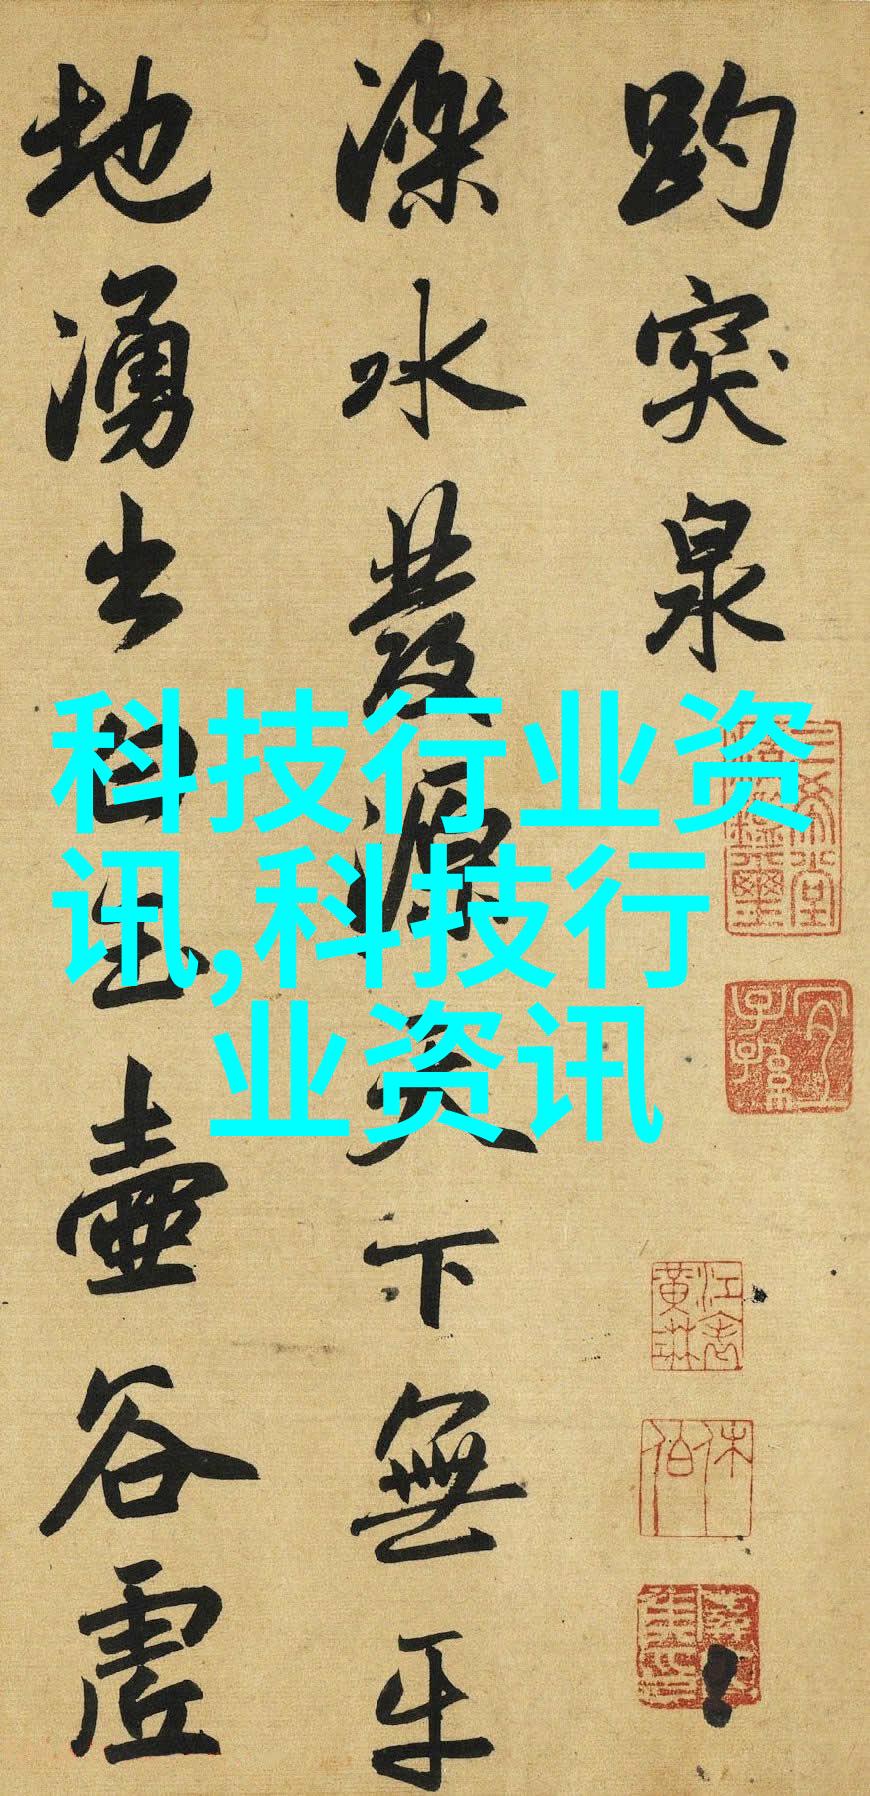 趵突泉
濼水發源天下無
平地湧出白玉壺
谷虛
科技行业资
讯,科技行
业资讯